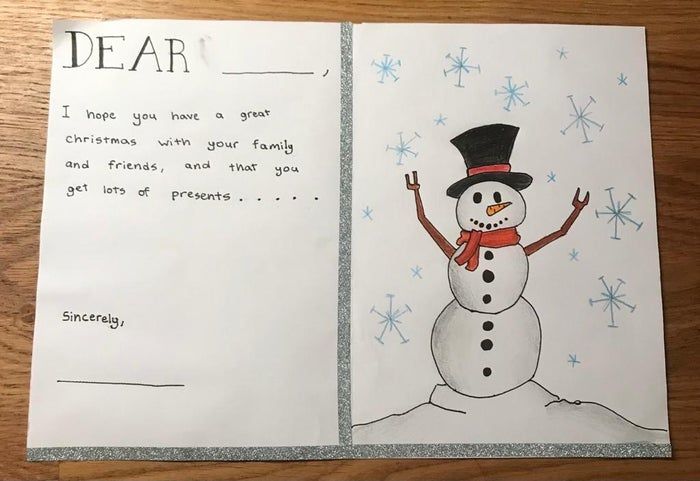 DEAR ________,
I hope you have a great
christmas with your family
and friends, and that you
get lots of presents. . . . .
Sincerely,